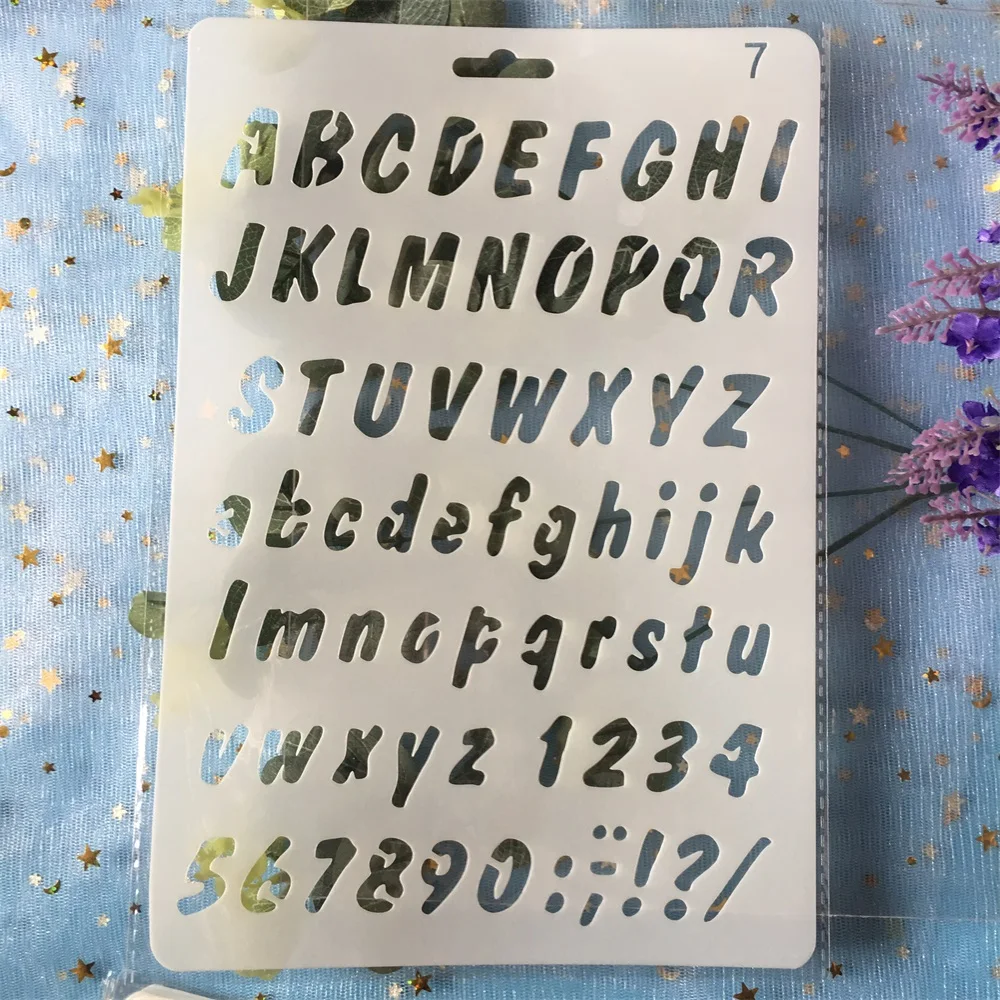 7
ABCDEFGHI
JKLMNOPQR
STUVWXYZ
abcdefghijk
lmnopqrstu
vwxyz 1234
567890:;¨-!?/